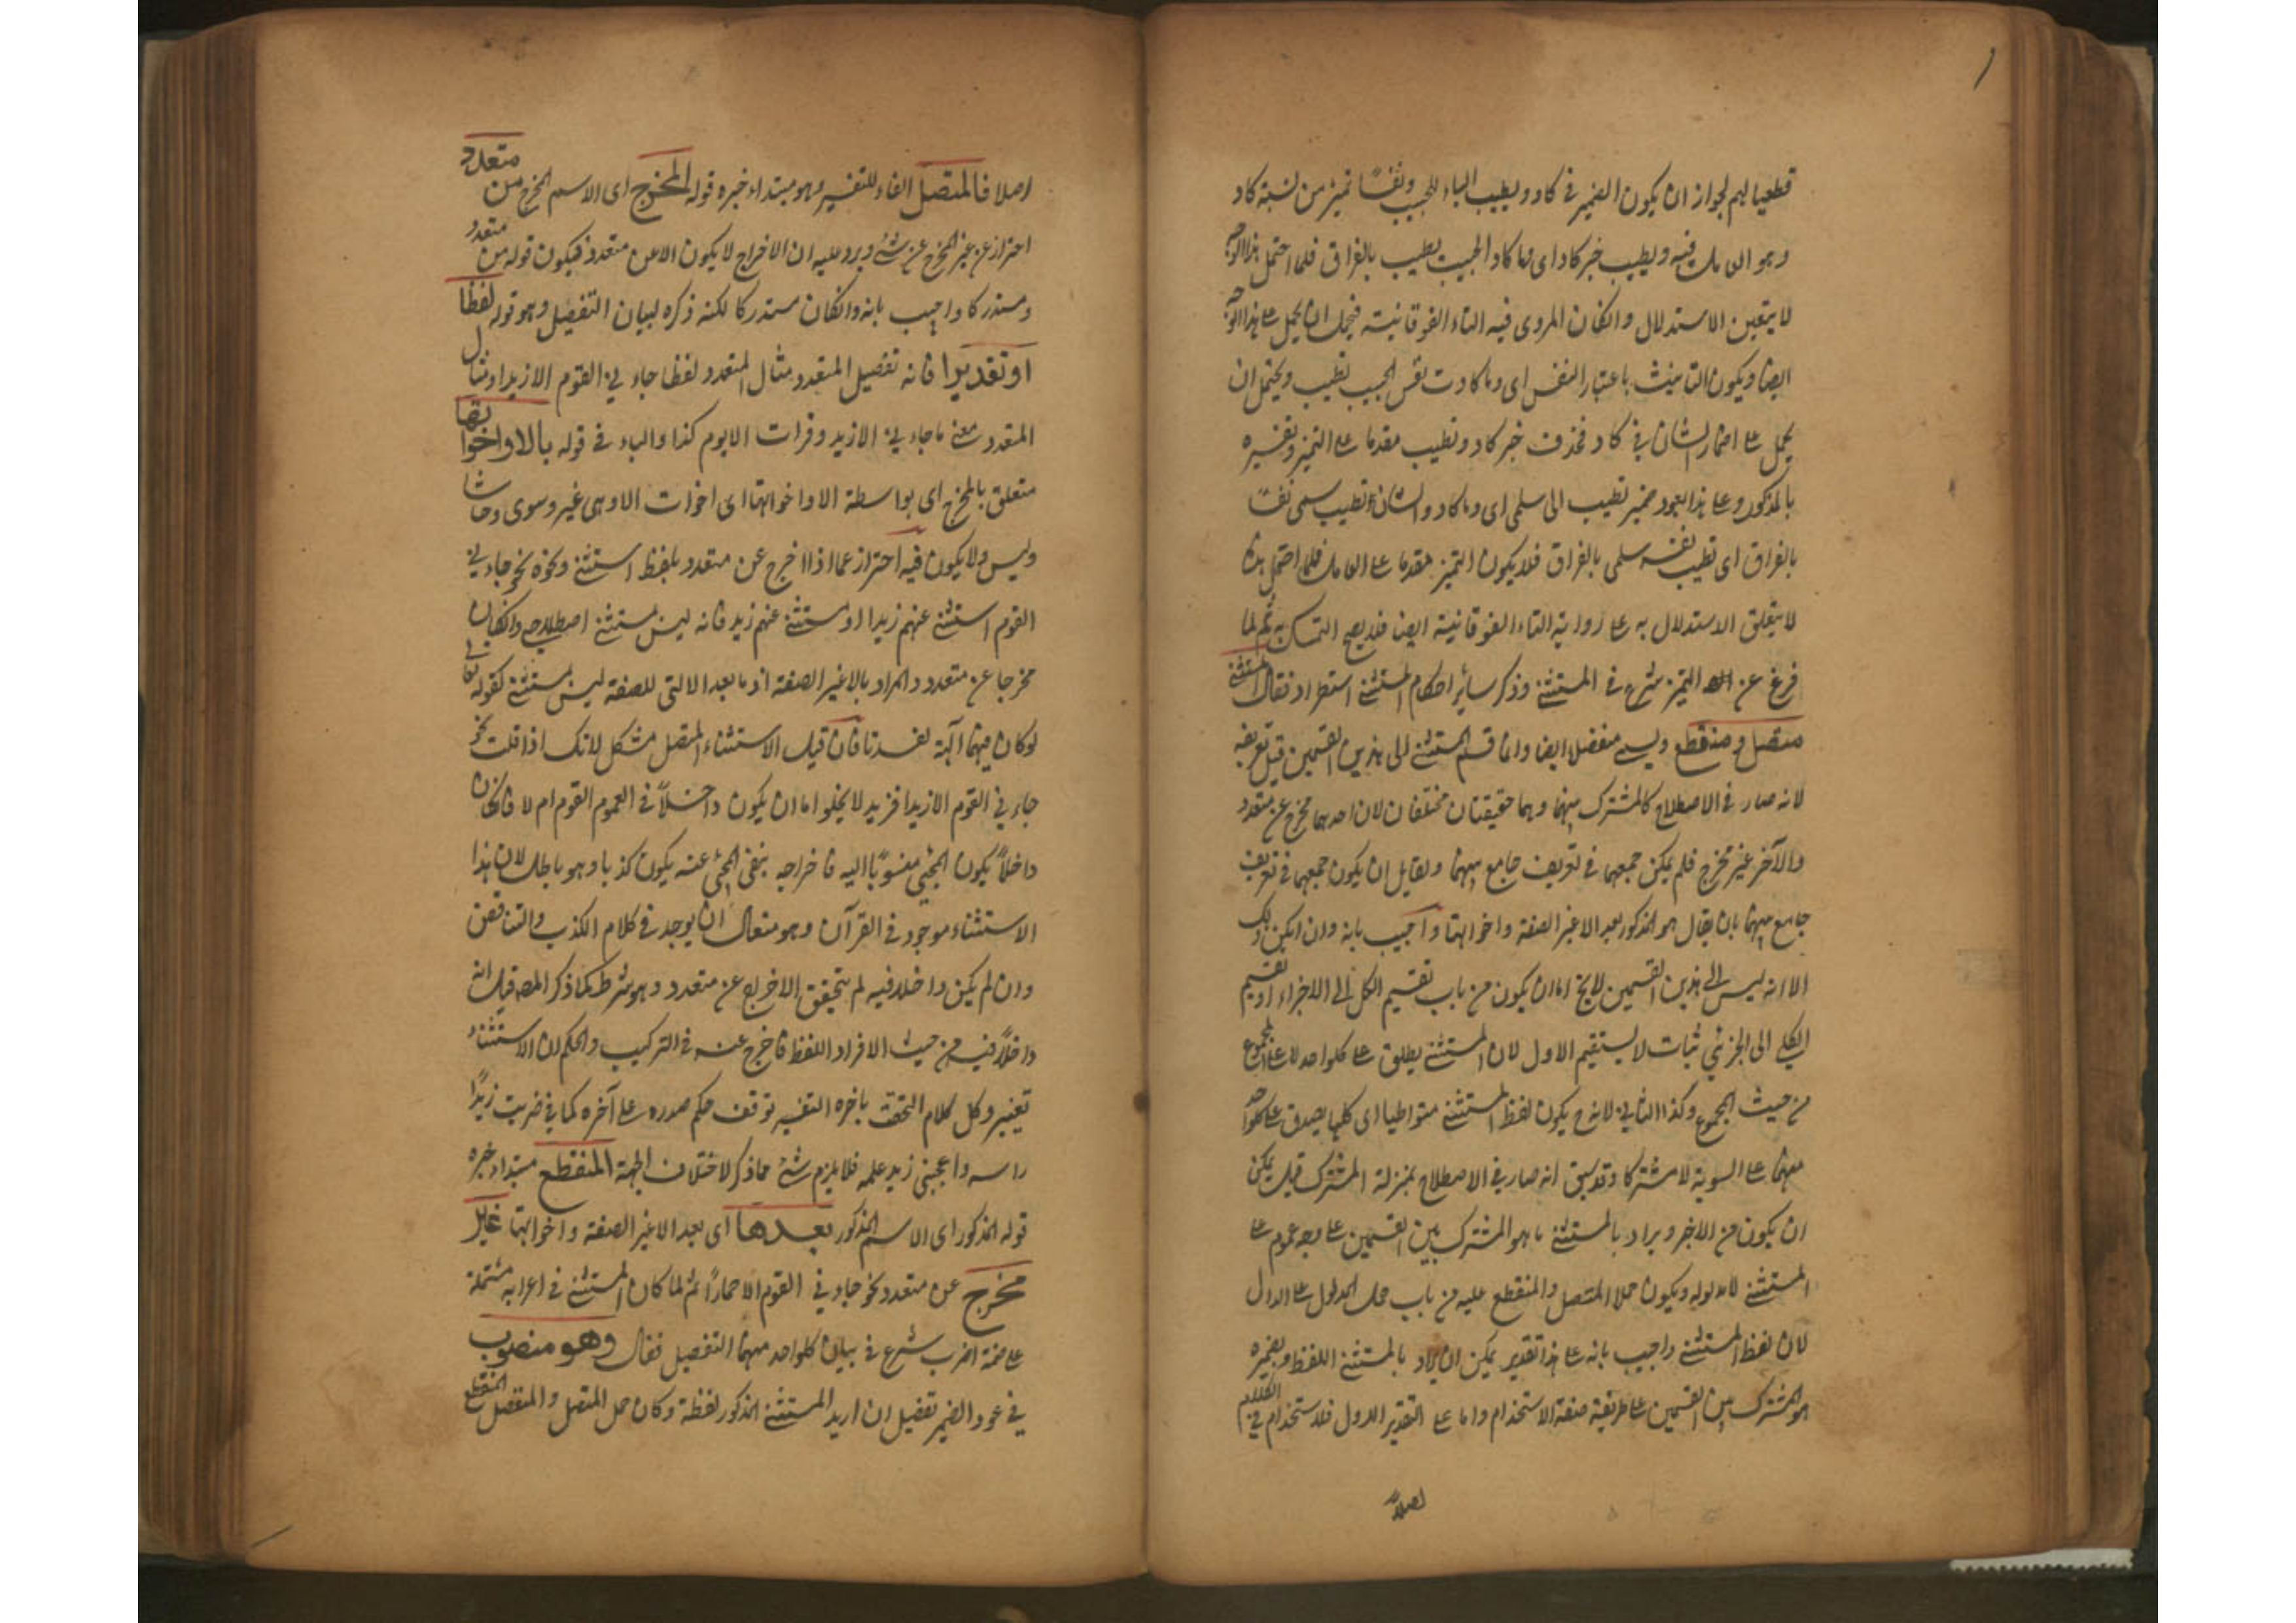 قطعيا لهم لجواز ان يكون الضمير في كاد ويطيب بالياء للحبيب ونفسًا تميز من نسبة كاد
وهو العامل فيه ويطيب خبر كاد اى وما كاد الحبيب يطيب بالفراق فلما احتمل هذا الوجه
لا يتعين الاستدلال وان كان المروى فيه التاء الفوقانية فيحتمل ان يحمل على هذا الوجه
ايضا ويكون التانيث باعتبار النفس اى وما كادت نفس الحبيب تطيب ويحتمل ان
يحمل على اضمار الشان في كاد فحذف خبر كاد وتطيب مقدما على التميز وتفسيره
بالمذكور وعلى هذا يعود ضمير تطيب الى سلمى اى وما كاد والشان تطيب سلمى نفسًا
بالفراق اى تطيب نفسه سلمى بالفراق فلا يكون التميز مقدما على العامل فلما احتمل هذا
لا يتعلق الاستدلال به على رواية التاء الفوقانية ايضا فلا يصح التمسك به ثم لما
فرغ عن التميز شرع في المستثنى وذكر سائر احكام المستثنى استطراد فقال المستثنى
متصل ومنقطع ويسمى منفصلا ايضا وانما قسم المستثنى الى هذين القسمين قبل تعريفه
لانه صار في الاصطلاح كالمشترك بينهما وهما حقيقتان مختلفان لان احدهما مخرج عن متعدد
والآخر غير مخرج فلم يمكن جمعهما في تعريف جامع بينهما ولقايل ان يكون جمعهما في تعريف
جامع بينهما بان يقال هو المذكور بعد الا غير الصفة واخواتها واجيب بانه وان امكن ذلك
الا انه ليس الى هذين القسمين لا يخ اما ان يكون من باب تقسيم الكل الى الاجزاء او تقسيم
الكلى الى الجزئيات لا يستقيم الاول لان المستثنى يطلق على كلواحد لا على المجموع
من حيث المجموع وكذا الثاني لانه ح يكون لفظ المستثنى متواطيا اى كليا يصدق على كلواحد
منهما على السوية لا مشتركا وقد سبق انه صار في الاصطلاح بمنزلة المشترك قيل يمكن
ان يكون من الاخر ويراد بالمستثنى ما هو المشترك بين القسمين على وجه عموم على
المستثنى لا مدلوله ويكون حملا المتصل والمنقطع عليه من باب حمل المدلول على الدال
لان لفظ المستثنى واجيب بانه على هذا تقدير يمكن ان يراد بالمستثنى اللفظ وبضميره
هو المشترك بين القسمين على طريقة صنعة الاستخدام واما على التقدير الاول فلا استخدام في الكلام
اصلاً
اصلا فالمتصل الفاء للتفسير وهو مبتداء خبره قوله المخرج اى الاسم المخرج من متعدد
احتراز عن غير المخرج عن شئ ويرد عليه ان الاخراج لا يكون الا عن متعدد فيكون قوله من متعدد
مستدركا واجيب بانه وان كان مستدركا لكنه ذكره لبيان التفصيل وهو قوله لفظا
او تقديرا فانه تفصيل المتعدد مثال المتعدد لفظا جاءني القوم الا زيدا ومثال
المتعدد معنى ما جاءني الا زيد وقرات الا يوم كذا والباء في قوله بالا واخواتها
متعلق بالمخرج اى بواسطة الا واخواتها اى اخوات الا وهى غير وسوى وحاشا
وليس ولا يكون فيه احتراز عما اذا اخرج عن متعدد بلفظ استثنى ونحوه نحو جاءني
القوم استثنى عنهم زيدا او ستثنى عنهم زيد فانه ليس مستثنى اصطلاحى وان كان
مخرجا عن متعدد والمراد بالا غير الصفة اذ ما بعد الا التى للصفة ليس مستثنى كقوله تعالى
لو كان فيهما آلهة لفسدتا فان قيل الاستثناء المتصل مشكل لانك اذا قلت نحو
جاءني القوم الا زيدا فزيد لا يخلوا اما ان يكون داخلاً في العموم القوم ام لا فان كان
داخلاً يكون المجئى منسوبًا اليه فاخراجه بنفى المجئ عنه يكون كذبا وهو باطل لان هذا
الاستثناء موجود في القرآن وهو متعال ان يوجد في كلام الكذب والتناقض
وان لم يكن داخلا فيه لم يتحقق الاخراج عن متعدد وهو شرط كما ذكر المص قيل انه
داخلاً فيه من حيث الافراد اللفظ فاخرج عنه في التركيب والحكم لان الاستثناء
تغيير وكل كلام التحقت باخره التغيير توقف حكم صدوره على آخره كما في ضربت زيدًا
راسه واعجبنى زيد علمه فلا يلزم شئ مما ذكر لاختلاف الجهة المنقطع مبتداء خبره
قوله المذكور اى الاسم المذكور بعدها اى بعد الا غير الصفة واخواتها غير
مخرج عن متعدد نحو جاءني القوم الا حمارًا ثم لما كان المستثنى في اعرابه مشتملة
على خمسة اضرب شرع في بيان كلواحد منهما التفصيل فقال وهو منصوب
في عود الضمير تفصيل ان اريد المستثنى المذكور لفظة وكان حمل المتصل والمنفصل المنقطع